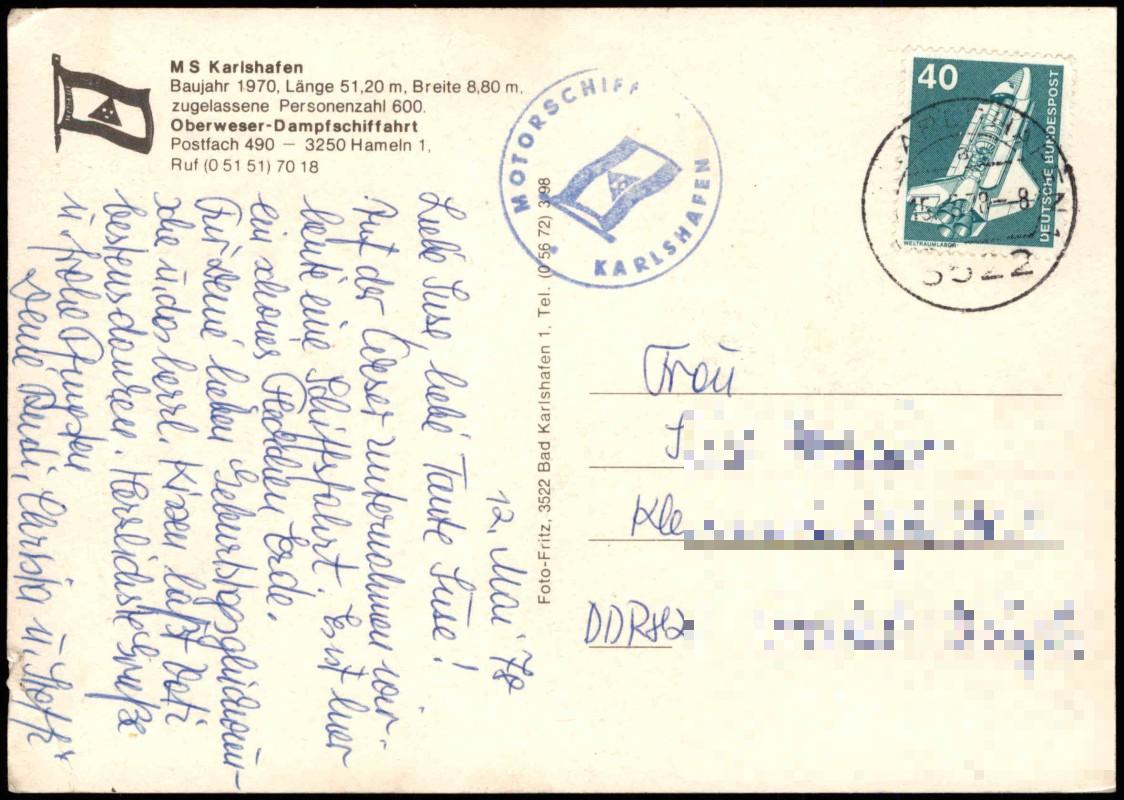 MS Karlshafen
Baujahr 1970, Länge 51,20 m, Breite 8,80 m,
zugelassene Personenzahl 600.
Oberweser-Dampfschiffahrt
Postfach 490 — 3250 Hameln 1,
Ruf (0 51 51) 70 18
MOTORSCHIFF
KARLSHAFEN
40
DEUTSCHE BUNDESPOST
WELTRAUMLABOR
3522
Foto-Fritz, 3522 Bad Karlshafen 1, Tel. (0 56 72) 3
12. Mai 78
Liebe Suse, liebe Tante Suse!
Auf der Weser unternehmen wir
heute eine Schiffsfahrt. Es ist hier
ein schönes Fleckchen Erde.
Für Deine lieben Geburtstagsglückwün-
sche u. das herrl. Kissen läßt
bestens danken. Herzlichste Grüße
u. frohe Pfingsten
Deine Christa u.
Frau
DDR